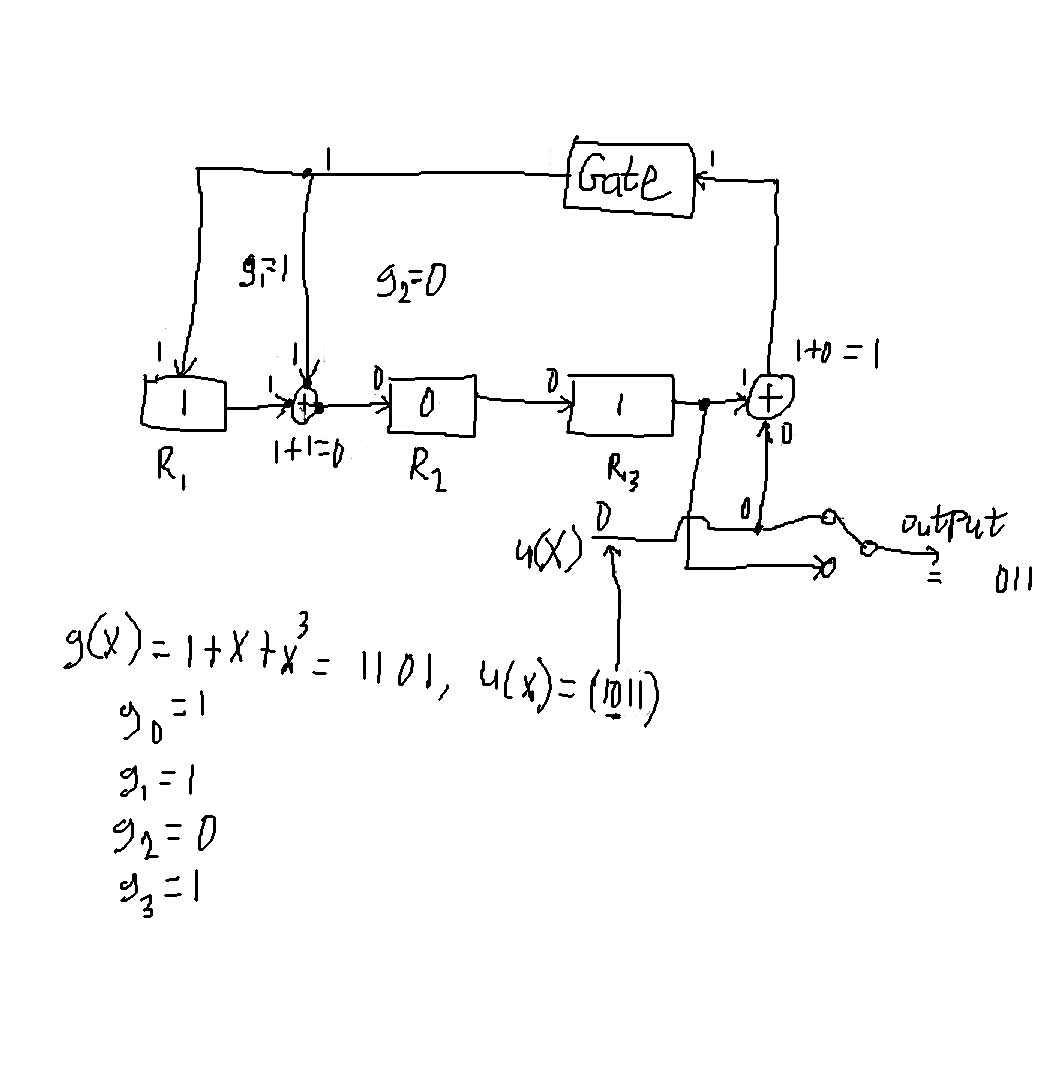 1 Gate 1
g₁=1 g₂=0
1+0 = 1
1 1 1 0 0 1
1 1 0 0 1 +
+
1+1=0 0
R₁ R₂ R₃
0 0 output
u(X) = 011
g(x) = 1+X+x³ = 1101, u(x) = (1011)
g₀ = 1
g₁ = 1
g₂ = 0
g₃ = 1